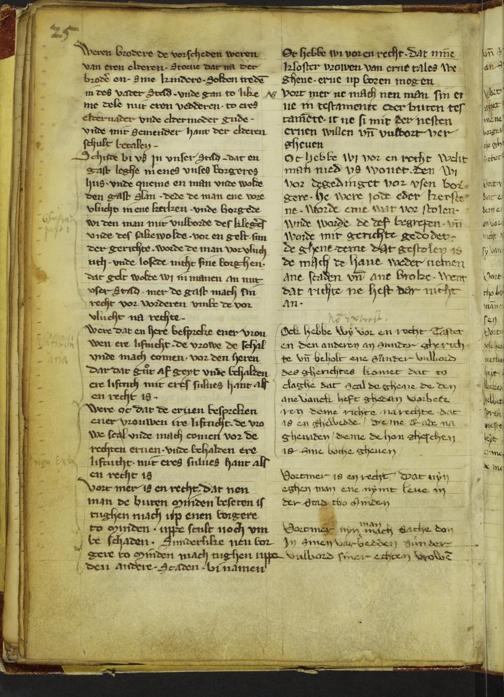 25
Weren brodere de vorscheden weren
van eren elderen. Storue dat na der
brode en. sine kindere. solten treden
in des vader stad. vnde gan to like
me dele mit eren vedderen. to eres
eldervader vnde eldermoder gude.
vnde mit semender hant der elderen
schult betalen.
Schute bi vs in vnser stad. dat en
gast leghe in enes vnses borgeres
hus. vnde queme en man vnde wolde
den gast slan. dede de man ene vor
vlucht in ene kerken. vnde borgede
wi den man mit vulborde des klegers
vnde des sakewolde. vor en gelt. sun
der gerichte. worde de man vorvluch
tich. vnde losede nicht sine borghen.
dat gelt wolde wi in manen. An mit
vser stad. mer de gast mach sin
recht vor vorderen vmbe de vor
vlucht na rechte.
Were dat en here bespreke ener vrou
wen ere liftucht. de vrowe de schal
vnde mach comen vor den heren
dar dat gut af geyt vnde behalden
ere liftuch mit eres sulues hant als
en recht is
Were oc dat de eruen bespreken
ener vrouwen ire liftucht. de vro
we scal vnde mach comen vor de
rechten eruen. vnde behalden ere
liftucht. mit eres sulues hant als
en recht is
Vort mer is en recht. dat nen
man de buten minden beseten is
tughen mach vp enen borgere
to minden. vppe scult noch vm
be schaden. Sunderliken neu bor
gere to minden mach tughen vppe
den andere. schaden. bi namen
Oc hebbe wi vor en recht. Dat nine
kloster vrowen van erue tales we
ghene. erue vp boren mogen
Vort mer ne mach nen man sin er
ue in testamente oder buten tes
tamente. it ne si mit der nesten
eruen willen vn vulbort ver
gheuen
Oc hebbe wi vor en recht welk
man mid vs wonet. den wi
vor degedinget vor vsen bor
gere. he were jode eder kerste
ne. Worde eme wat vor stolen.
vnde worde de def begrepen. vn
worde mit gerichte gedodet.
de ghene deme dat gestolen is
de mach de haue weder nemen
ane schaden vn ane broke. went
dat richte ne heft dar nicht
an.
Ock hebbe wy vor en recht Tastet
en den anderen an sunder gherich
te vn beholt ene sunder vulbord
des gherichtes komet dat to
claghe dat scal de ghene de den
anevanck heft ghedan vorbete
ren deme richte na rechte dat
is en
is sine broke gheuen
Vortmer is en recht Dat nyn
eghen man ene nymt leue in
der stad tho minden
Vortmer nyn man mach sathe don
In sinen vor bedden sunder
vulbord siner echten vrowe